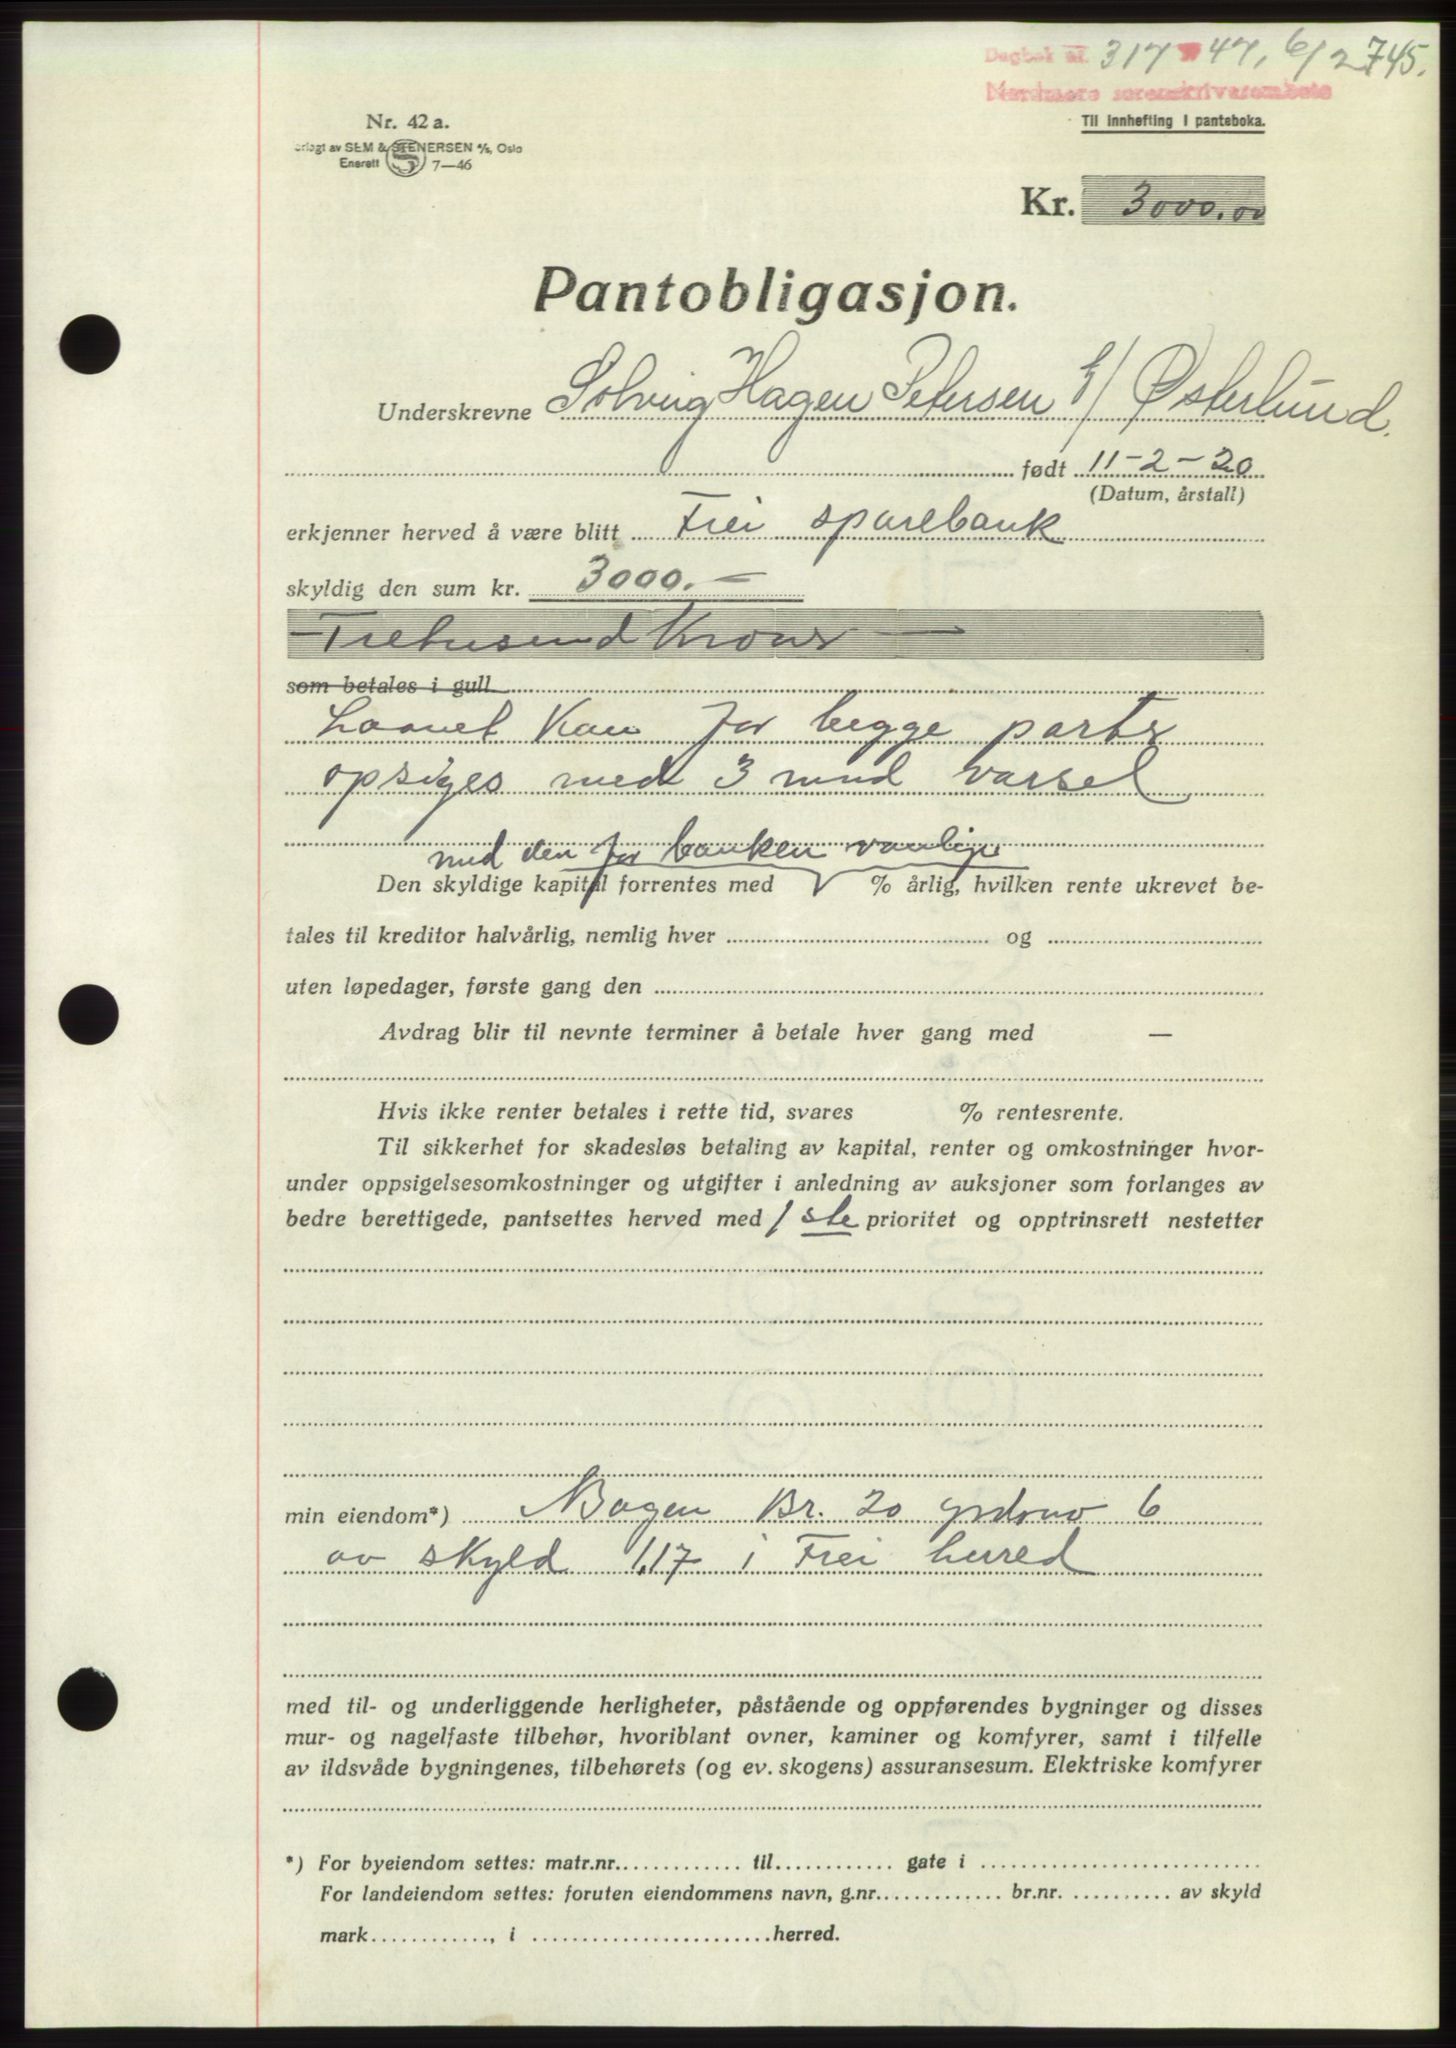 Dagbok nr. 317 47, 6/2 745.
Nordmøre sorenskriverembete
Til innhefting i panteboka.
Nr. 42 a.
SEM & STENERSEN A/S, Oslo
Enerett 7—46
Kr. 3000.00
Pantobligasjon.
Underskrevne Solveig Hagen Petersen f/ Østerlund.
født 11-2-20
(Datum, årstall)
erkjenner herved å være blitt Frei sparebank
skyldig den sum kr. 3000.—
— Tretusend Kroner —
som betales i gull
Laanet Kan for begge parter
opsiges med 3 mnd varsel
med den for banken vanlige
Den skyldige kapital forrentes med % årlig, hvilken rente ukrevet be-
tales til kreditor halvårlig, nemlig hver og
uten løpedager, første gang den
Avdrag blir til nevnte terminer å betale hver gang med —
Hvis ikke renter betales i rette tid, svares % rentesrente.
Til sikkerhet for skadesløs betaling av kapital, renter og omkostninger hvor-
under oppsigelsesomkostninger og utgifter i anledning av auksjoner som forlanges av
bedre berettigede, pantsettes herved med 1 ste prioritet og opptrinsrett nestetter
min eiendom*) Bogen Br. 20 grdsno 6
av skyld 1,17 i Frei herred
med til- og underliggende herligheter, påstående og oppførendes bygninger og disses
mur- og nagelfaste tilbehør, hvoriblant ovner, kaminer og komfyrer, samt i tilfelle
av ildsvåde bygningenes, tilbehørets (og ev. skogens) assuransesum. Elektriske komfyrer
*) For byeiendom settes: matr.nr. til gate i
For landeiendom settes: foruten eiendommens navn, g.nr. br.nr. av skyld
mark , i herred.